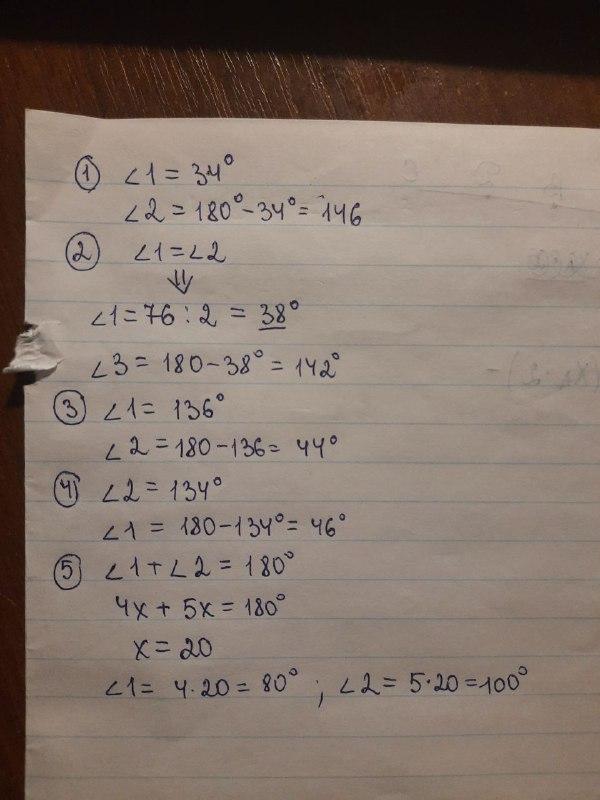 ① ∠1 = 34°
∠2 = 180° - 34° = 146
② ∠1 = ∠2
⇓
∠1 = 76 : 2 = 38°
∠3 = 180 - 38° = 142°
③ ∠1 = 136°
∠2 = 180 - 136 = 44°
④ ∠2 = 134°
∠1 = 180 - 134° = 46°
⑤ ∠1 + ∠2 = 180°
4x + 5x = 180°
x = 20
∠1 = 4 · 20 = 80° ; ∠2 = 5 · 20 = 100°